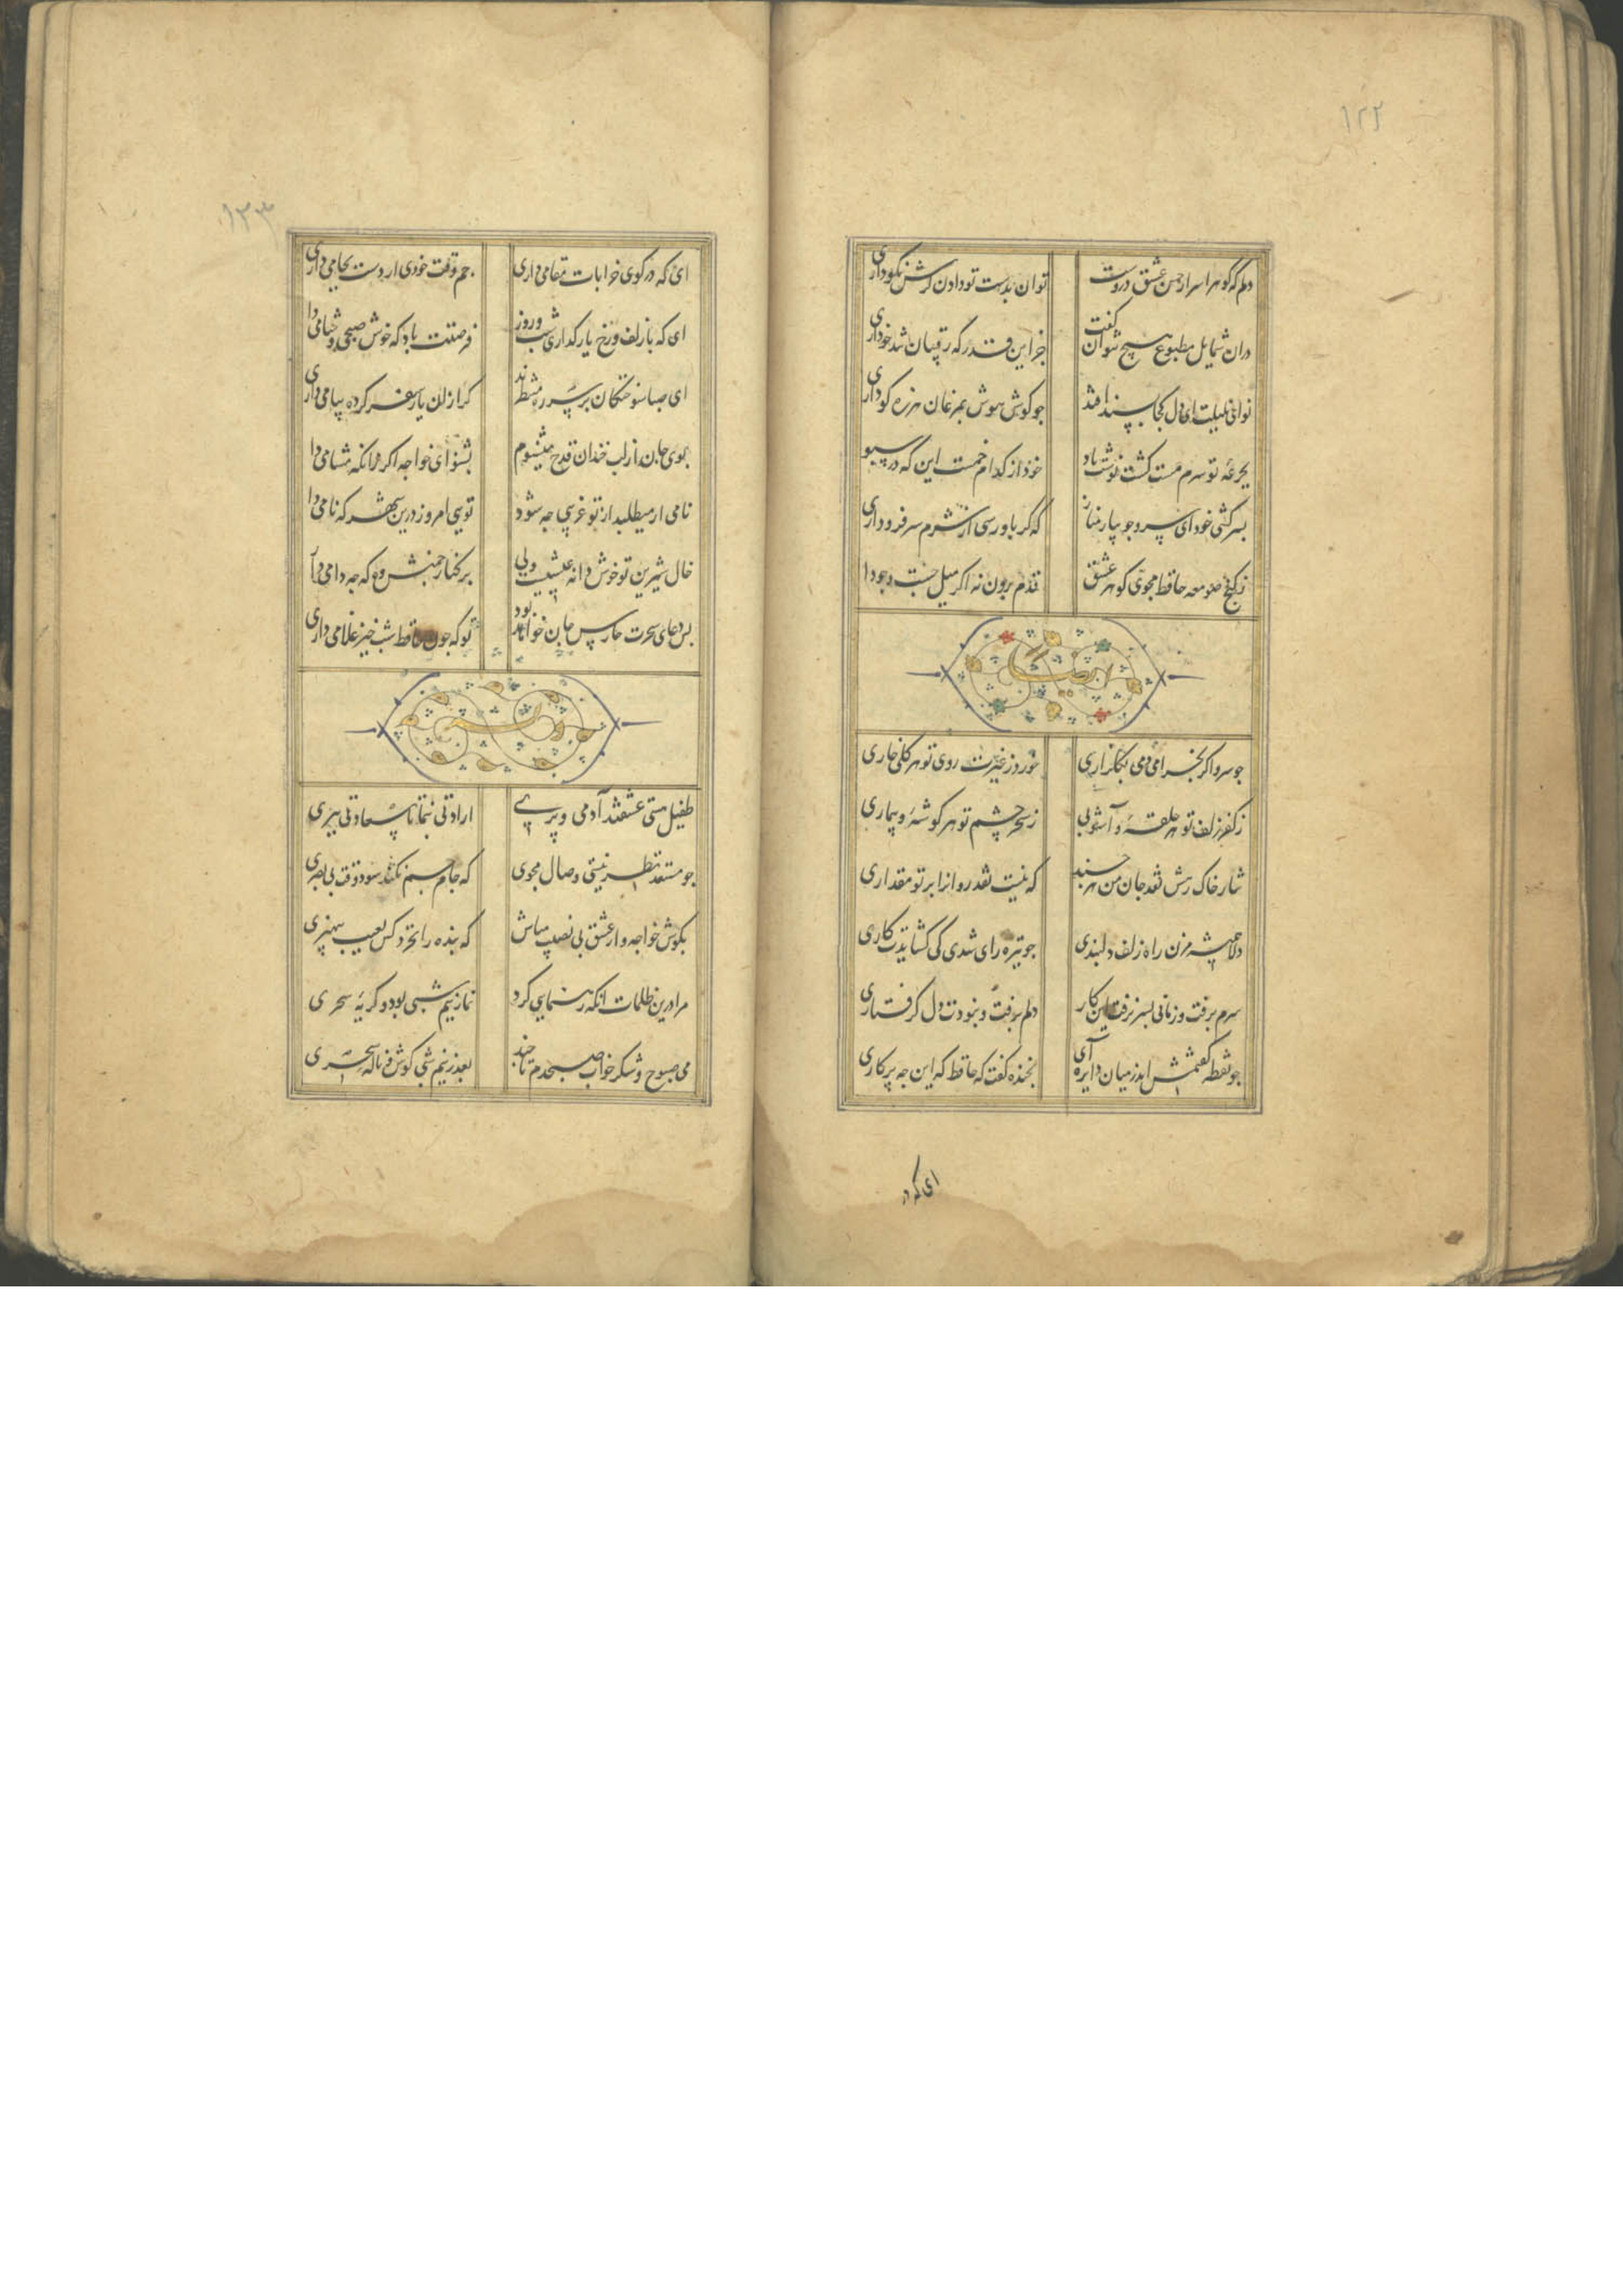 ۱۲۲
دلم که گوهر اسرار حسن عشق دروست
توان بدست تو دادن گرش نکو داری
دران شمایل مطبوع هیچ نتوان گفت
جز این قدر که رقیبان تند خو داری
نوای بلبلت ای دل کجا پسند افتد
جو کوش هوش بمرغان هرزه کو داری
بجرعه تو سرم مست کشت نوشت باد
خود از کدام خمست این که در سبو
بسرکشی خود ای سرو جویبار مناز
که کر باو رسی از شرم سر فرو داری
ز کنج صومعه حافظ مجوی کوهر عشق
قدم برون نه اکر میل جست وجو دا
ایضا
جو سرو اکر بخرامی دمی بکلزاری
خورد ز غیرت روی تو هر کلی خاری
ز کفر زلف تو هر حلقه و آشوبی
ز سحر چشم تو هر کوشه و بیماری
نثار خاک رهش نقد جان من هرچند
که نیست نقد روانرا بر تو مقداری
دلا همیشه مزن راه زلف دلبندی
جو تیره رای شدی کی کشایدت کاری
سرم برفت و زمانی بسر نرفت این کار
دلم برفت و نبودت دل کرفتاری
جو نقطه کفتمش اندر میان دایره آی
بخنده کفت که حافظ که این جه پرکاری
ای که در
۱۲۳
ای که در کوی خرابات مقامی داری
جم وقت خودی ار دست بجامی داری
ای که با زلف و رخ یار کذاری شب و روز
فرصتت باد که خوش صبحی و شامی دا
ای صبا سوختکان بر سر ره منتظرند
کر ازان یار سفر کرده پیامی داری
بوی جان از لب خندان قدح میشنوم
بشنو ای خواجه اکر زانکه مشامی دا
نامی ار میطلبد از تو غریبی جه شود
تویی امروز درین شهر که نامی دا
خال شیرین تو خوش دانه عیشیست ولی
بر کنار جمنش وه که جه دامی دا
بس دعای سحرت حارس جان خواهد بود
تو که جون حافظ شب خیز غلامی داری
وله
طفیل هستی عشقند آدمی و پری
ارادتی بنما تا سعادتی ببری
جو مستعد نظر نیستی وصال مجوی
که جام جم نکند سود وقت بی بصری
بکوش خواجه و از عشق بی نصیب مباش
که بنده را نخرد کس بعیب بی هنری
مرا درین ظلمات انکه رهنمایی کرد
نماز نیم شبی بود و کریه سحری
می صبوح و شکر خواب صبحدم تا جند
بعذر نیم شبی کوش و ناله سحری